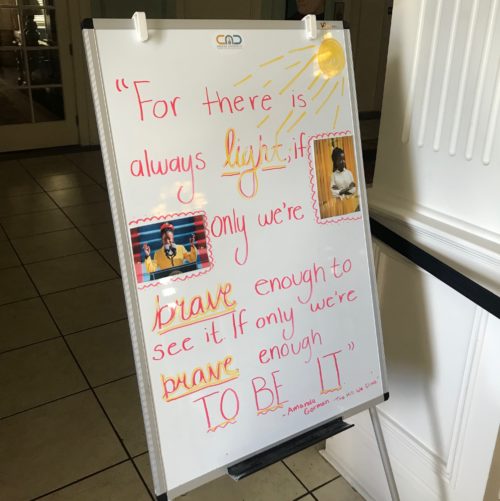 CAD
"For there is
always light, if
only we're
brave enough to
see it If only we're
brave enough
TO BE IT"
- Amanda
Gorman - The Hill We Climb